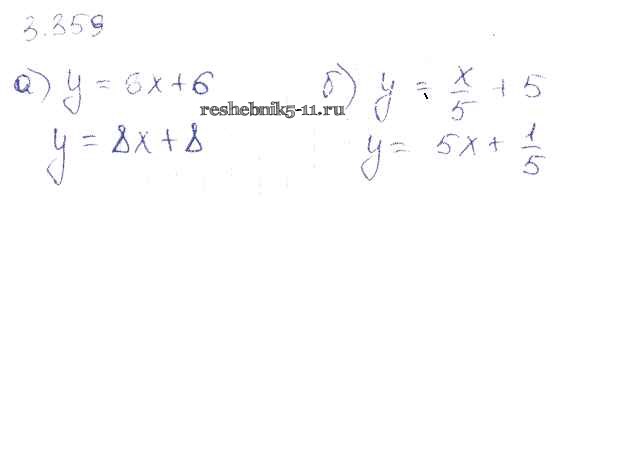 3.359
а) y = 6x+6
y = 8x+8
б) y = x/5 + 5
y = 5x + 1/5
reshebnik5-11.ru